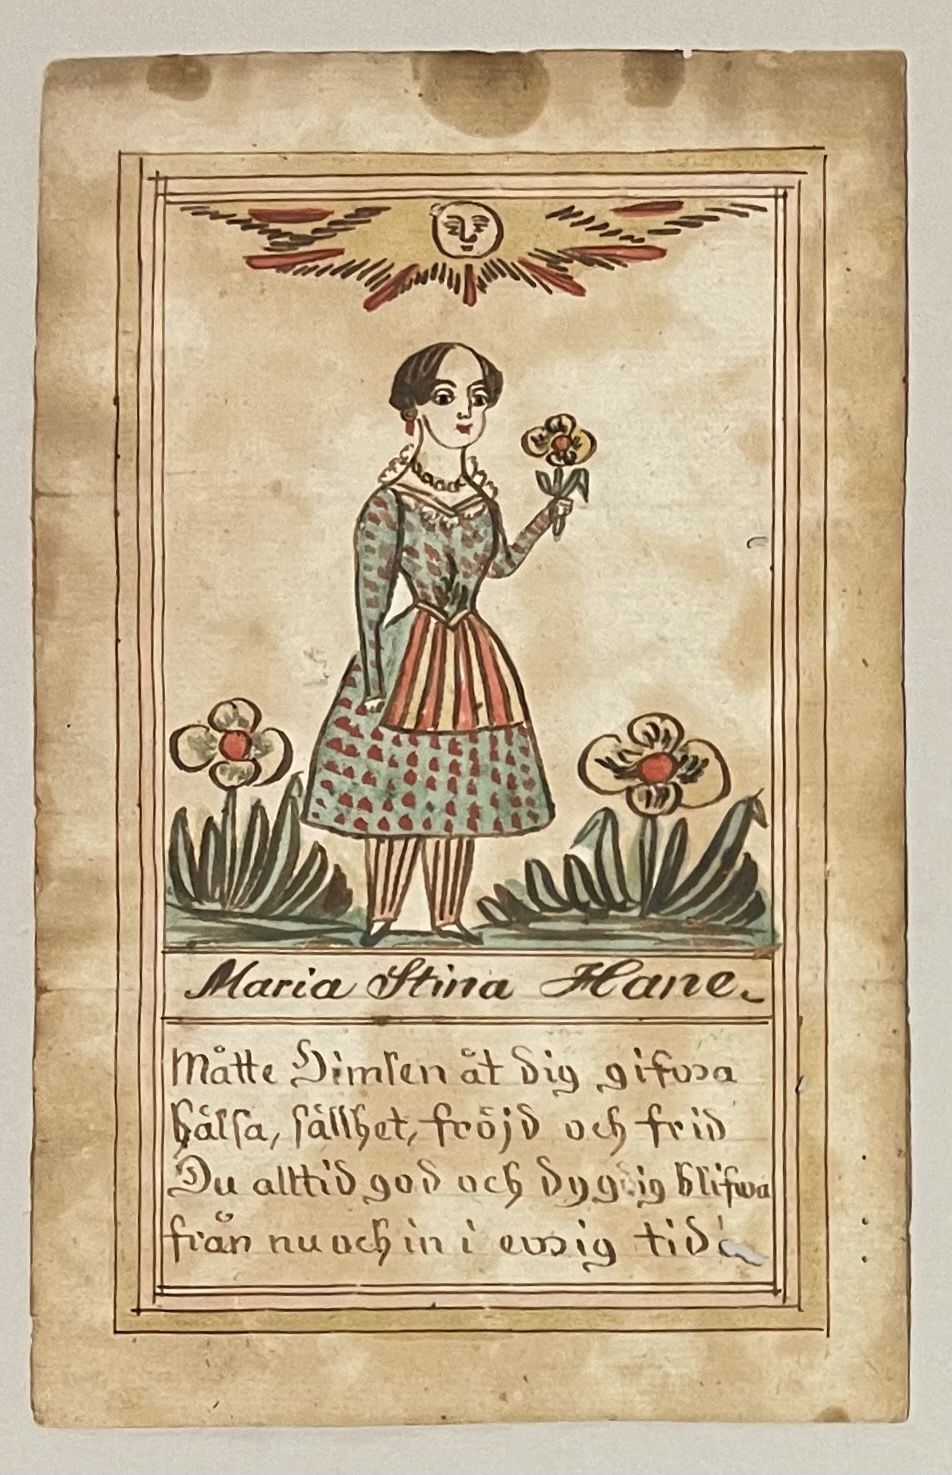 Maria Stina Hane.
Måtte Himlen åt dig gifwa
hälsa, sällhet, fröjd och frid
Du alltid god och dygdig blifwa
från nu och in i ewig tid.